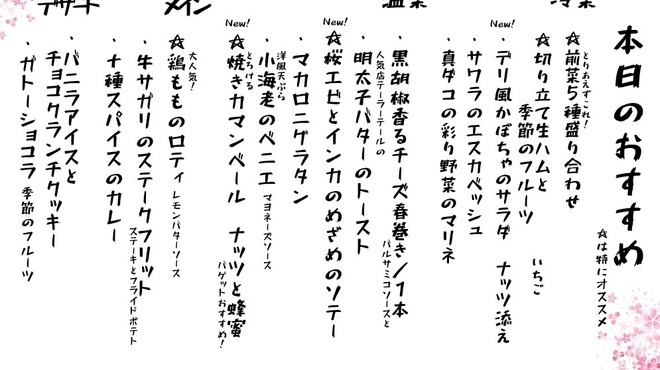 本日のおすすめ
☆は特にオススメ
冷菜
とりあえずこれ！
☆前菜5種盛り合わせ
☆切り立て生ハムと
季節のフルーツ いちご
New!
・デリ風かぼちゃのサラダ ナッツ添え
・サワラのエスカベッシュ
・真ダコの彩り野菜のマリネ
温菜
・黒胡椒香るチーズ春巻き/1本
バルサミコソースと
人気店テーラーテールの
・明太子バターのトースト
New!
☆桜エビとインカのめざめのソテー
・マカロニグラタン
洋風天ぷら
・小海老のベニエ マヨネーズソース
New!
とろける
☆焼きカマンベール ナッツと蜂蜜
バゲットおすすめ！
メイン
大人気！
☆鶏もものロティ レモンバターソース
・牛サガリのステークフリット
ステーキとフライドポテト
・十種スパイスのカレー
デザート
・バニラアイスと
チョコクランチクッキー
・ガトーショコラ 季節のフルーツ